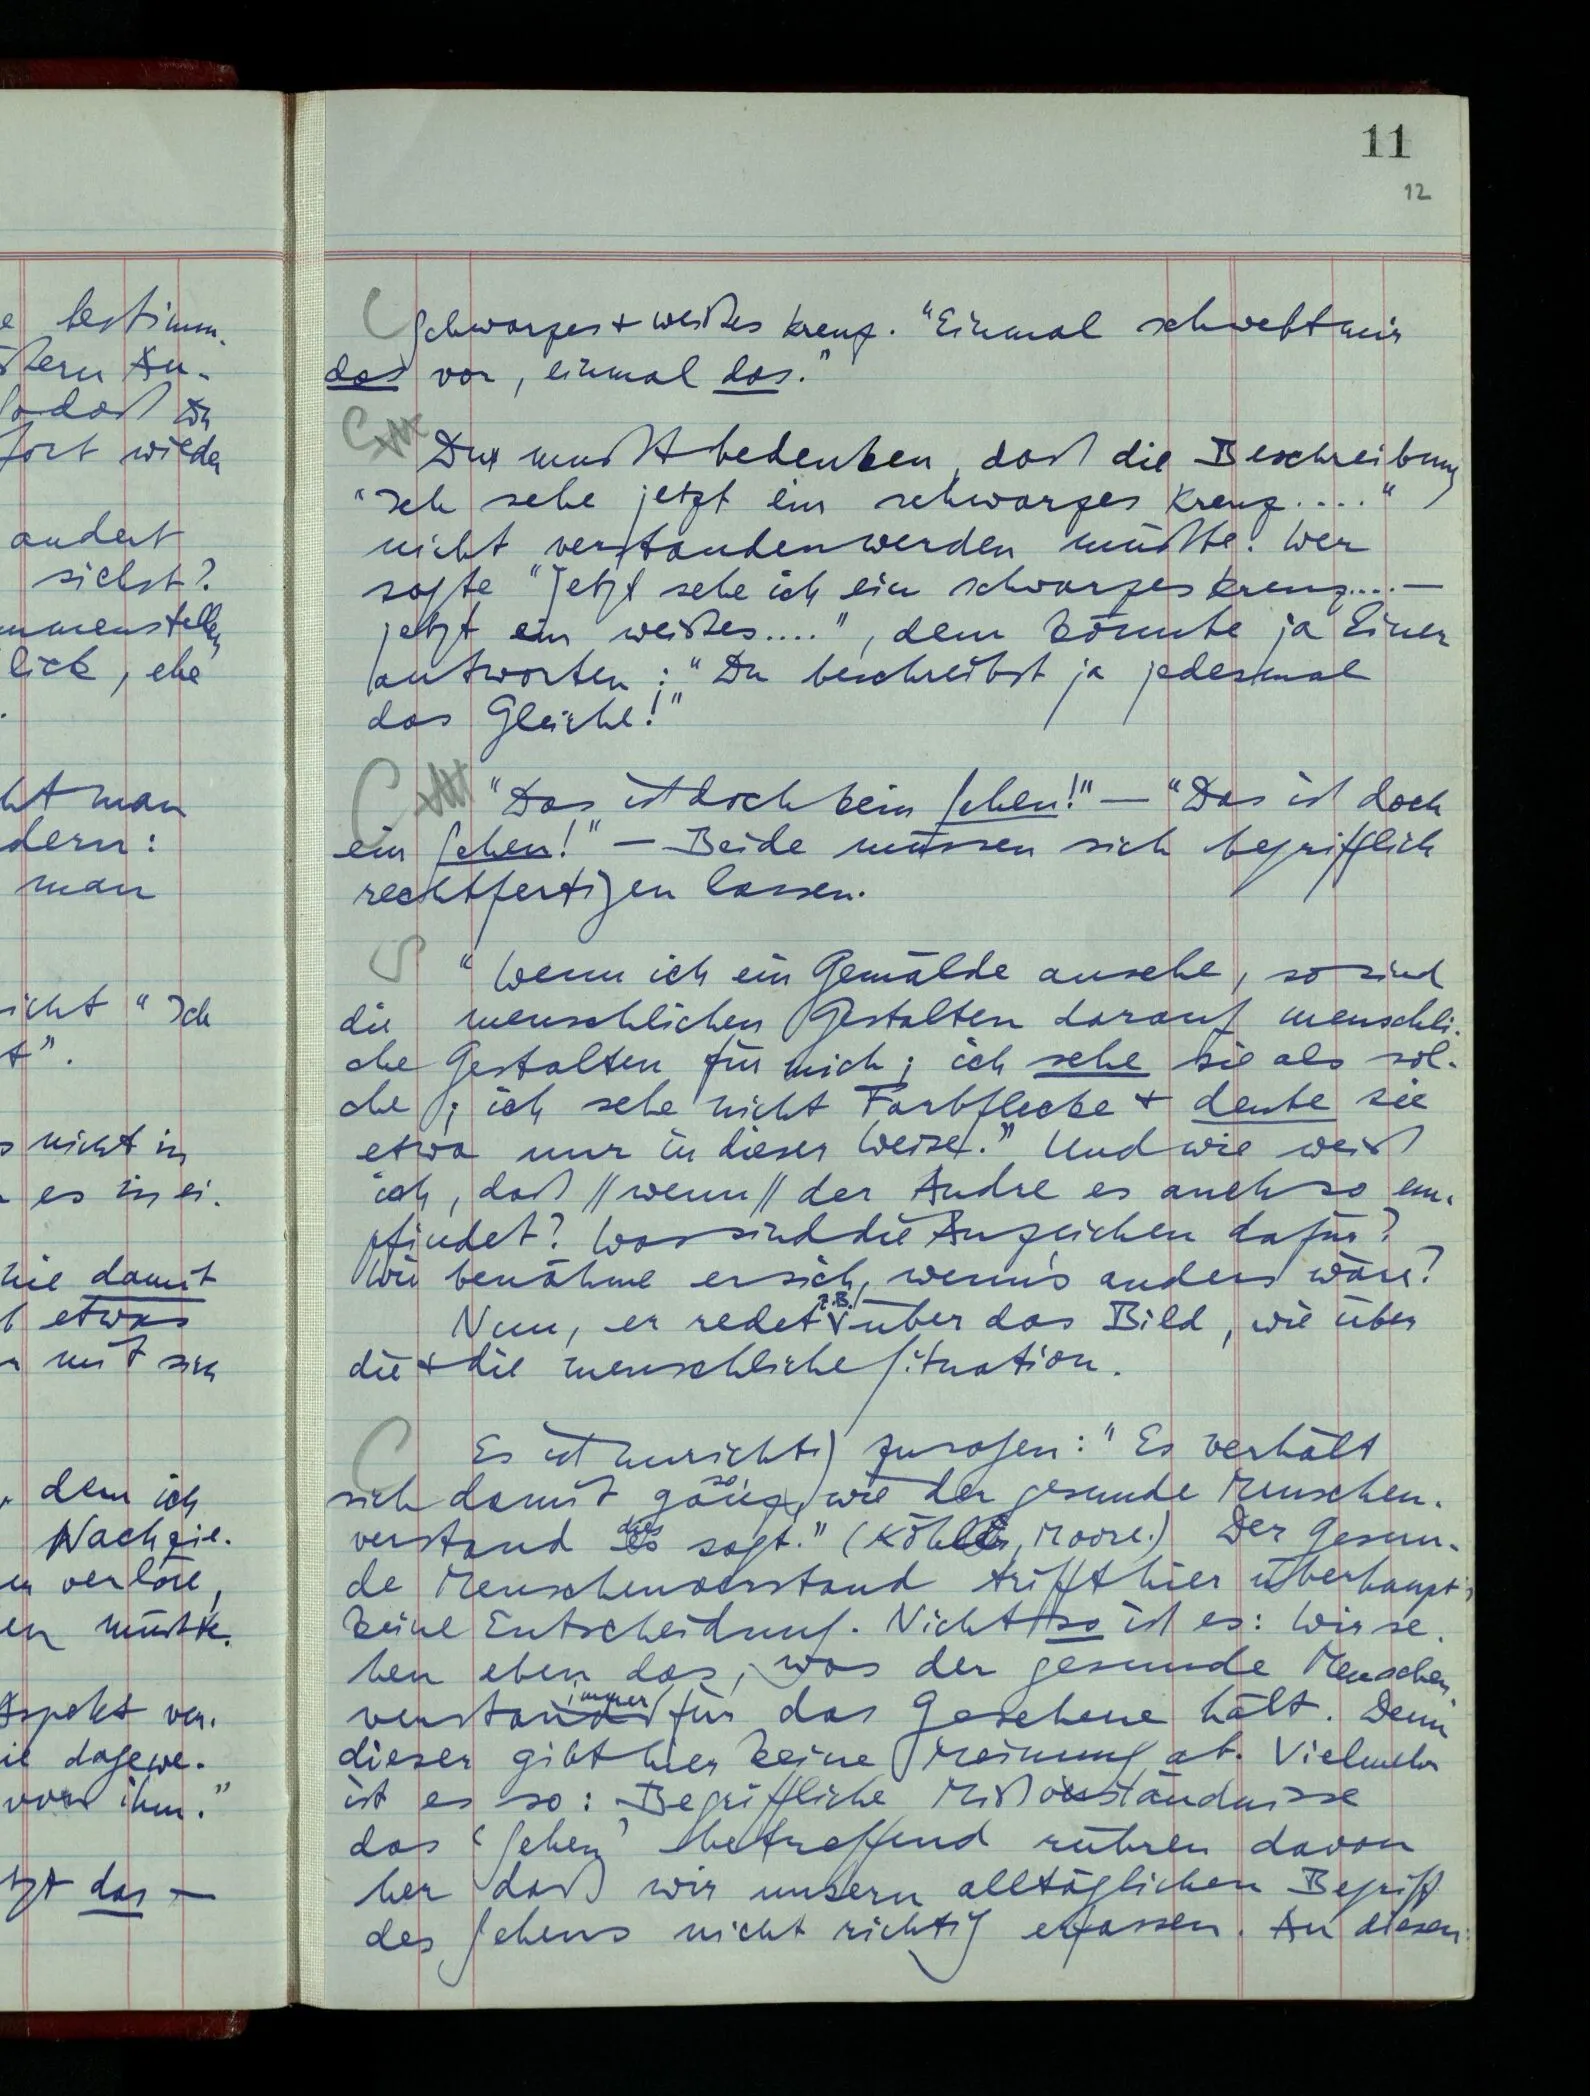 11
12
e bestimm-
ßern An-
sodaß Du
fort wieder
andert
siehst?
ammenstellen
lick, ehe
ht man
dern:
man
icht "Ich
t".
s nicht in
es in ei-
nie damit
b etwas
mit sich
dem ich
Nachzie-
en verlöre,
en müßte.
Aspekt ver-
ie dagewe-
vor ihm."
tzt das —
Schwarzes + weißes Kreuz. "Einmal schwebt mir
das vor, einmal das."
Du mußt bedenken, daß die Beschreibung
"Ich sehe jetzt ein schwarzes Kreuz...."
nicht verstanden werden müßte. Wer
sagte "Jetzt sehe ich ein schwarzes Kreuz.... —
jetzt ein weißes....", dem könnte ja Einer
antworten: "Du beschreibst ja jedesmal
das Gleiche!"
"Das ist doch kein Sehen!" — "Das ist doch
ein Sehen!" — Beide müssen sich begrifflich
rechtfertigen lassen.
"Wenn ich ein Gemälde ansehe, so sind
die menschlichen Gestalten darauf menschli-
che Gestalten für mich; ich sehe sie als sol-
che; ich sehe nicht Farbflecke + deute sie
etwa nur in dieser Weise." Und wie weiß
ich, daß // wenn // der Andre es auch so em-
pfindet? Was sind die Anzeichen dafür?
Wie benähme er sich, wenn's anders wäre?
Nun, er redet z.B. über das Bild, wie über
die + die menschliche Situation.
Es ist unrichtig zu sagen: "Es verhält
sich damit ganz so, wie der gesunde Menschen-
verstand dies sagt." (Köhler, Moore.) Der gesun-
de Menschenverstand trifft hier überhaupt
keine Entscheidung. Nicht so ist es: Wir se-
hen eben das, was der gesunde Menschen-
verstand immer für das Gesehene hält. Denn
dieser gibt hier keine Meinung ab. Vielmehr
ist es so: Begriffliche Mißverständnisse
das 'Sehen' betreffend rühren davon
her daß wir unsern alltäglichen Begriff
des Sehens nicht richtig erfassen. An diesen